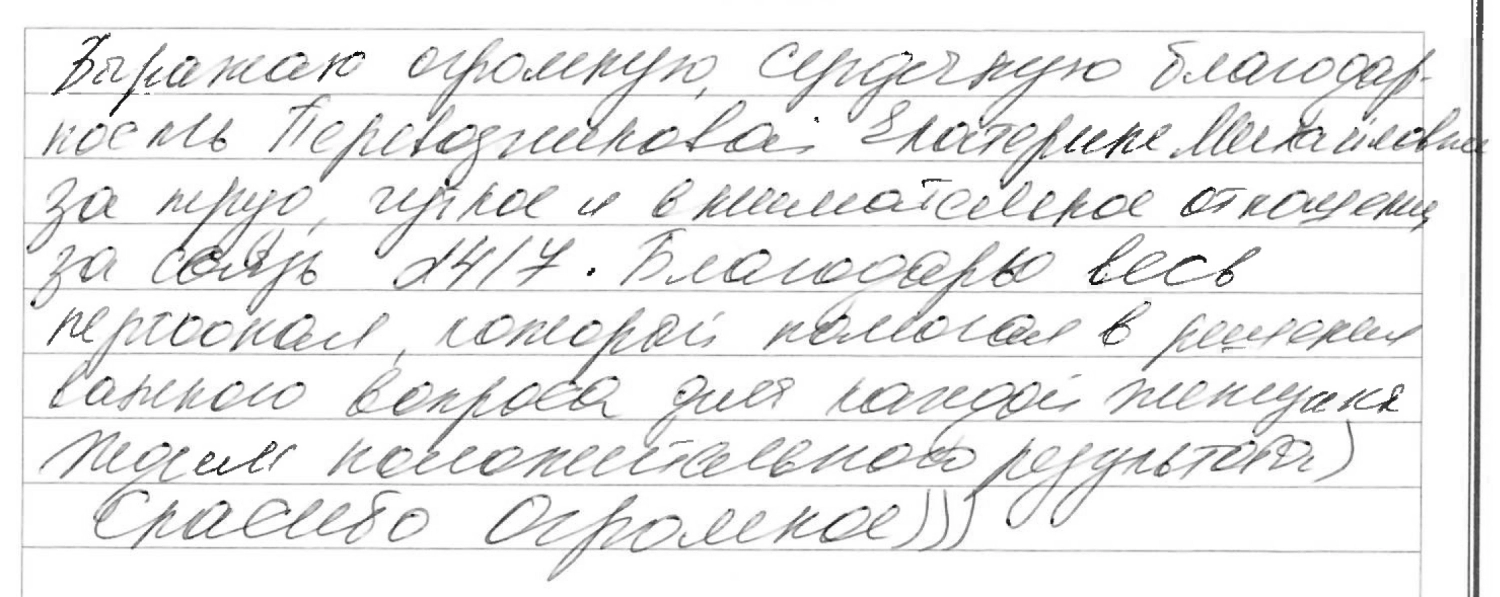 Выражаю огромную, сердечную благодар-
ность Перевозчиковой Екатерине Михайловне
за труд, чуткое и внимательное отношение,
за связь 24/7. Благодарю весь
персонал, который помогал в решении
важного вопроса для каждой женщины
Ждём положительного результата)
Спасибо Огромное)))